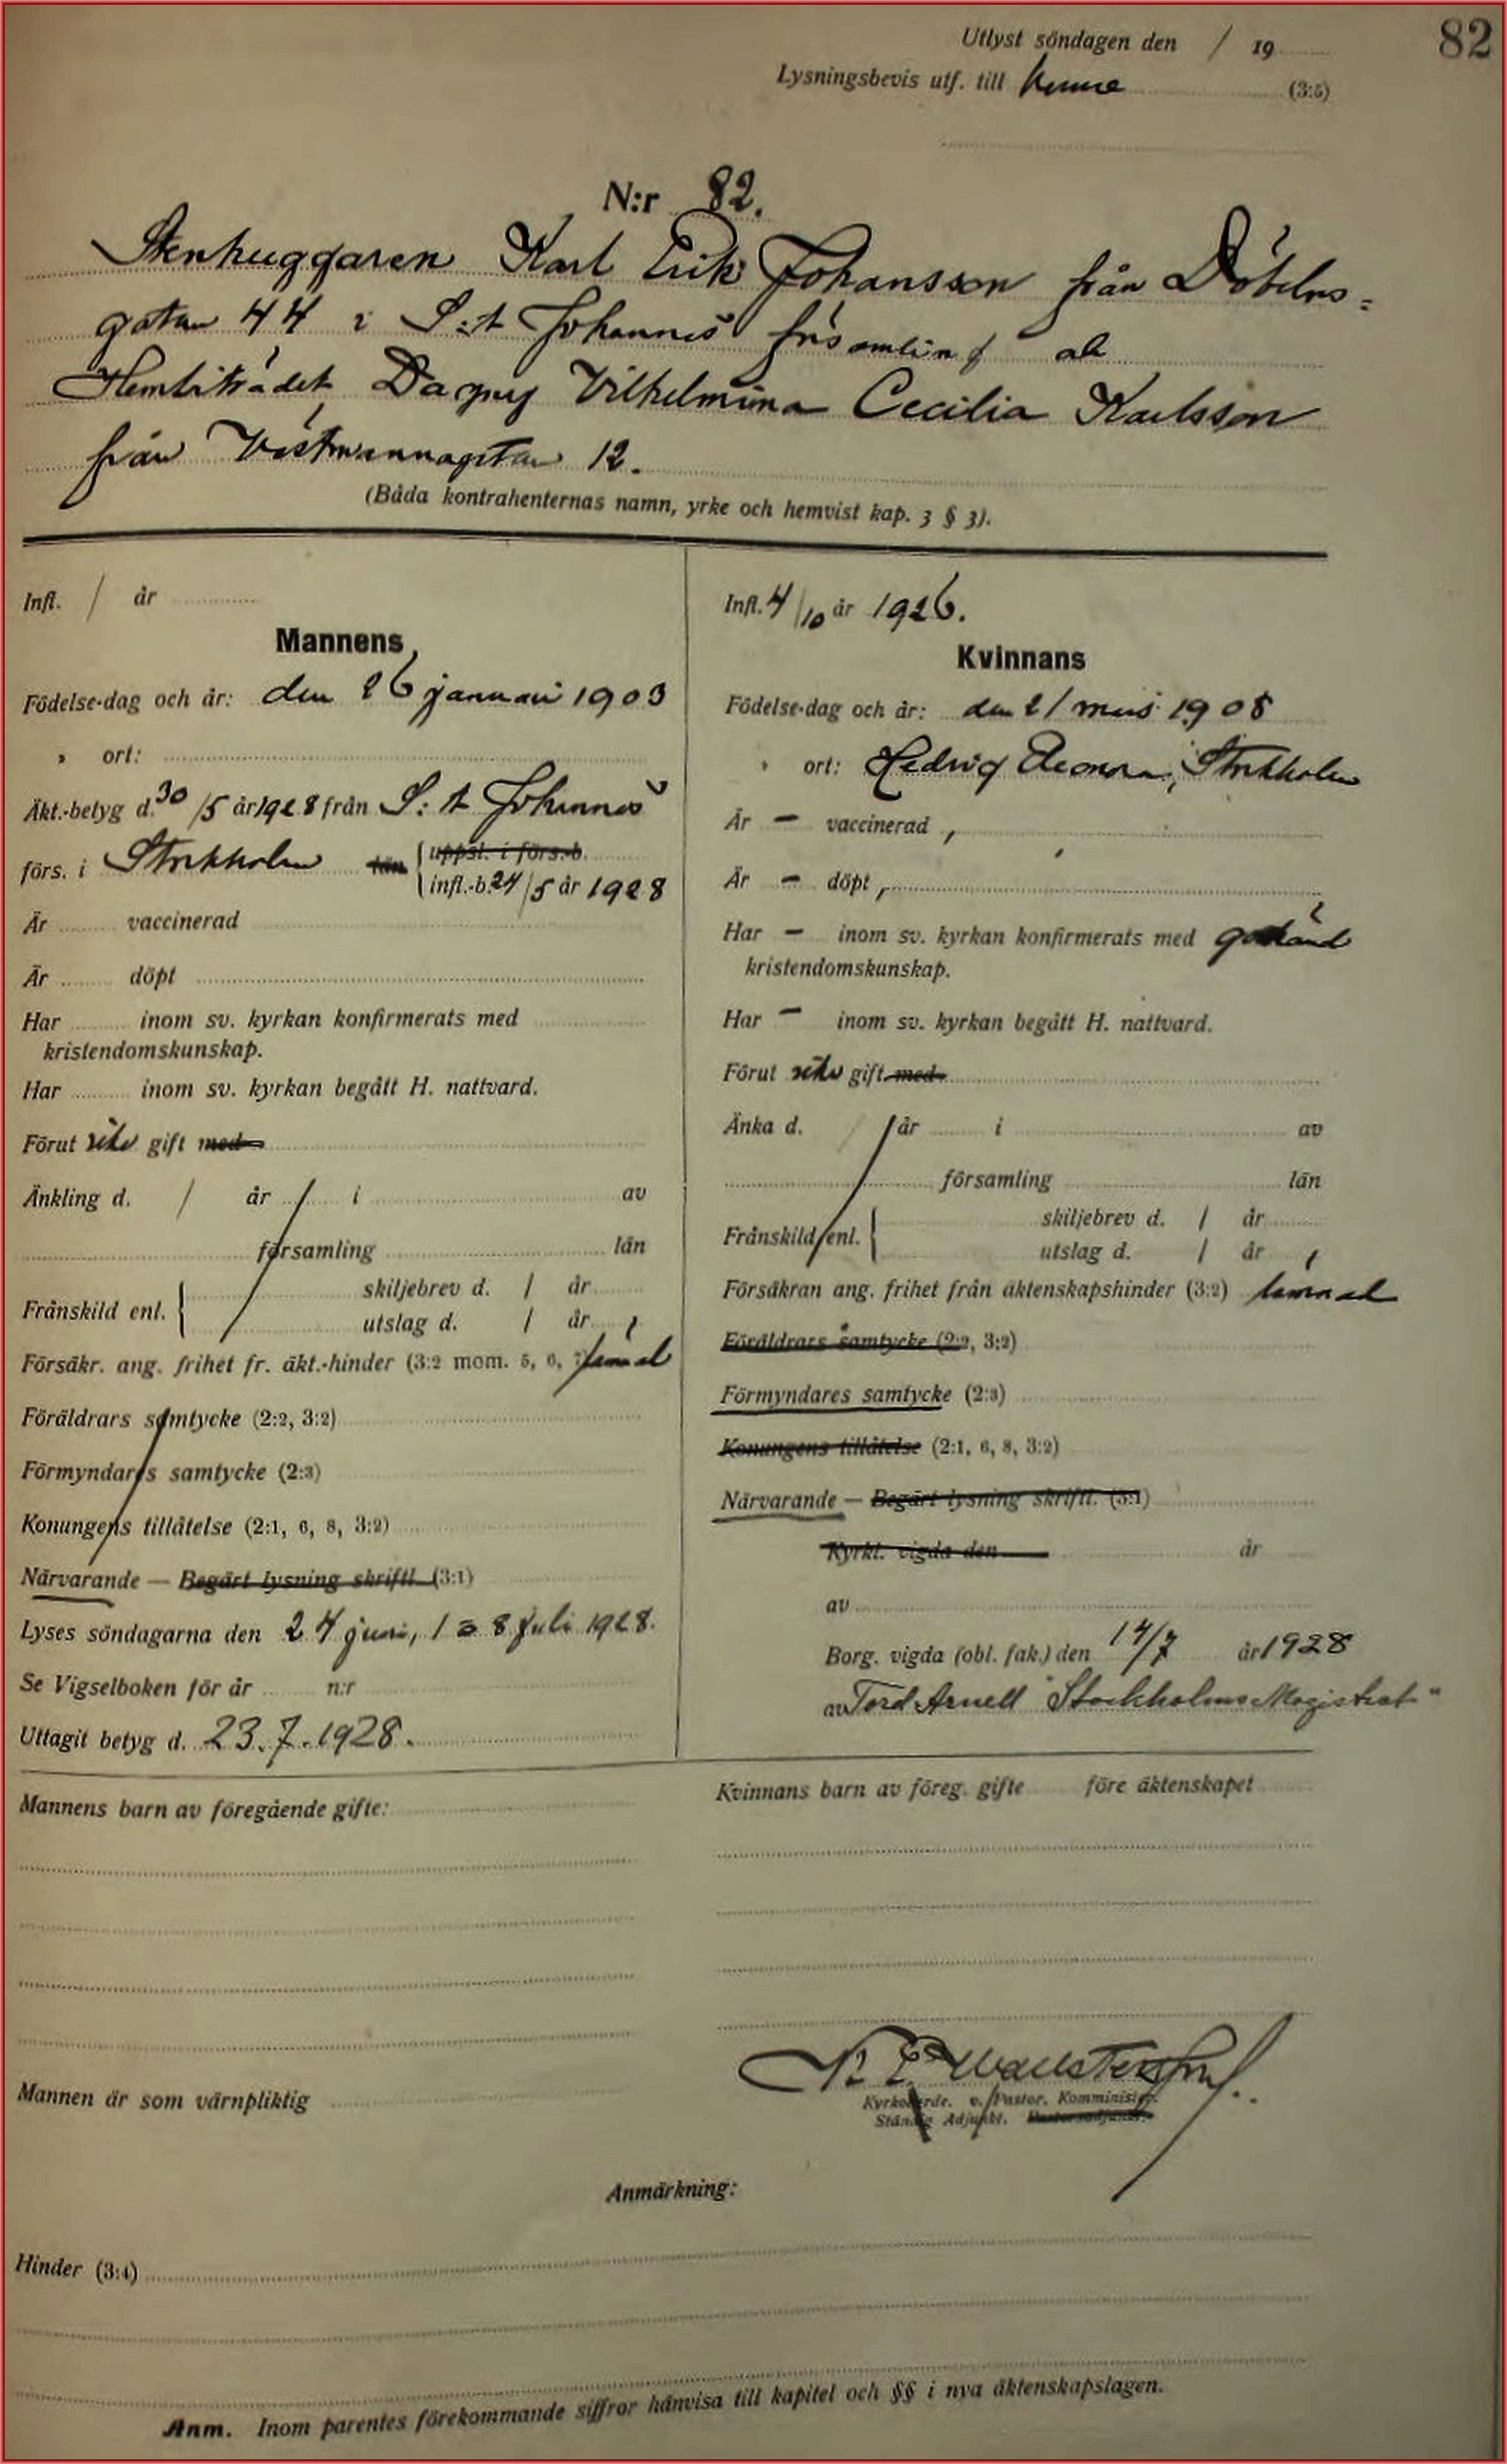 82
Utlyst söndagen den / 19
Lysningsbevis utf. till henne (3:5)
N:r 82.
Stenhuggaren Karl Erik Johansson från Döbelns-
gatan 44 i S:t Johannes församling och
Hembiträdet Dagny Vilhelmina Cecilia Karlsson
från Västmannagatan 12.
(Båda kontrahenternas namn, yrke och hemvist kap. 3 § 3).
Infl. / år
Mannens
Födelse-dag och år: den 26 januari 1903
» ort:
Äkt.-betyg d. 30/5 år 1928 från S:t Johannes
förs. i Stockholm län { uppst. i förs.-b.
infl.-b. 24/5 år 1928
Är vaccinerad
Är döpt
Har inom sv. kyrkan konfirmerats med
kristendomskunskap.
Har inom sv. kyrkan begått H. nattvard.
Förut icke gift med
Änkling d. / år i av
församling län
Frånskild enl. { skiljebrev d. / år
utslag d. / år
Försäkr. ang. frihet fr. äkt.-hinder (3:2 mom. 5, 6, lämnad
Föräldrars samtycke (2:2, 3:2)
Förmyndares samtycke (2:3)
Konungens tillåtelse (2:1, 6, 8, 3:2)
Närvarande — Begärt lysning skriftl. (3:1)
Lyses söndagarna den 24 juni, 1 o 8 juli 1928.
Se Vigselboken för år n:r
Uttagit betyg d. 23.7.1928.
Infl. 4/10 år 1926.
Kvinnans
Födelse-dag och år: den 21 mars 1908
» ort: Hedvig Eleonora, Stockholm
Är – vaccinerad,
Är – döpt,
Har – inom sv. kyrkan konfirmerats med godkänd
kristendomskunskap.
Har – inom sv. kyrkan begått H. nattvard.
Förut icke gift med
Änka d. / år i av
församling län
Frånskild enl. { skiljebrev d. / år
utslag d. / år
Försäkran ang. frihet från äktenskapshinder (3:2) lämnad
Föräldrars samtycke (2:2, 3:2)
Förmyndares samtycke (2:3)
Konungens tillåtelse (2:1, 6, 8, 3:2)
Närvarande — Begärt lysning skriftl. (3:1)
Kyrkl. vigda den år
av
Borg. vigda (obl. fak.) den 14/7 år 1928
av Tord Arnell "Stockholms Magistrat"
Mannens barn av föregående gifte:
Kvinnans barn av föreg. gifte före äktenskapet
Mannen är som värnpliktig
Kyrkoherde. v. Pastor. Komminister.
Ständig Adjunkt. Pastorsadjunkt.
Anmärkning:
Hinder (3:4)
Anm. Inom parentes förekommande siffror hänvisa till kapitel och §§ i nya äktenskapslagen.